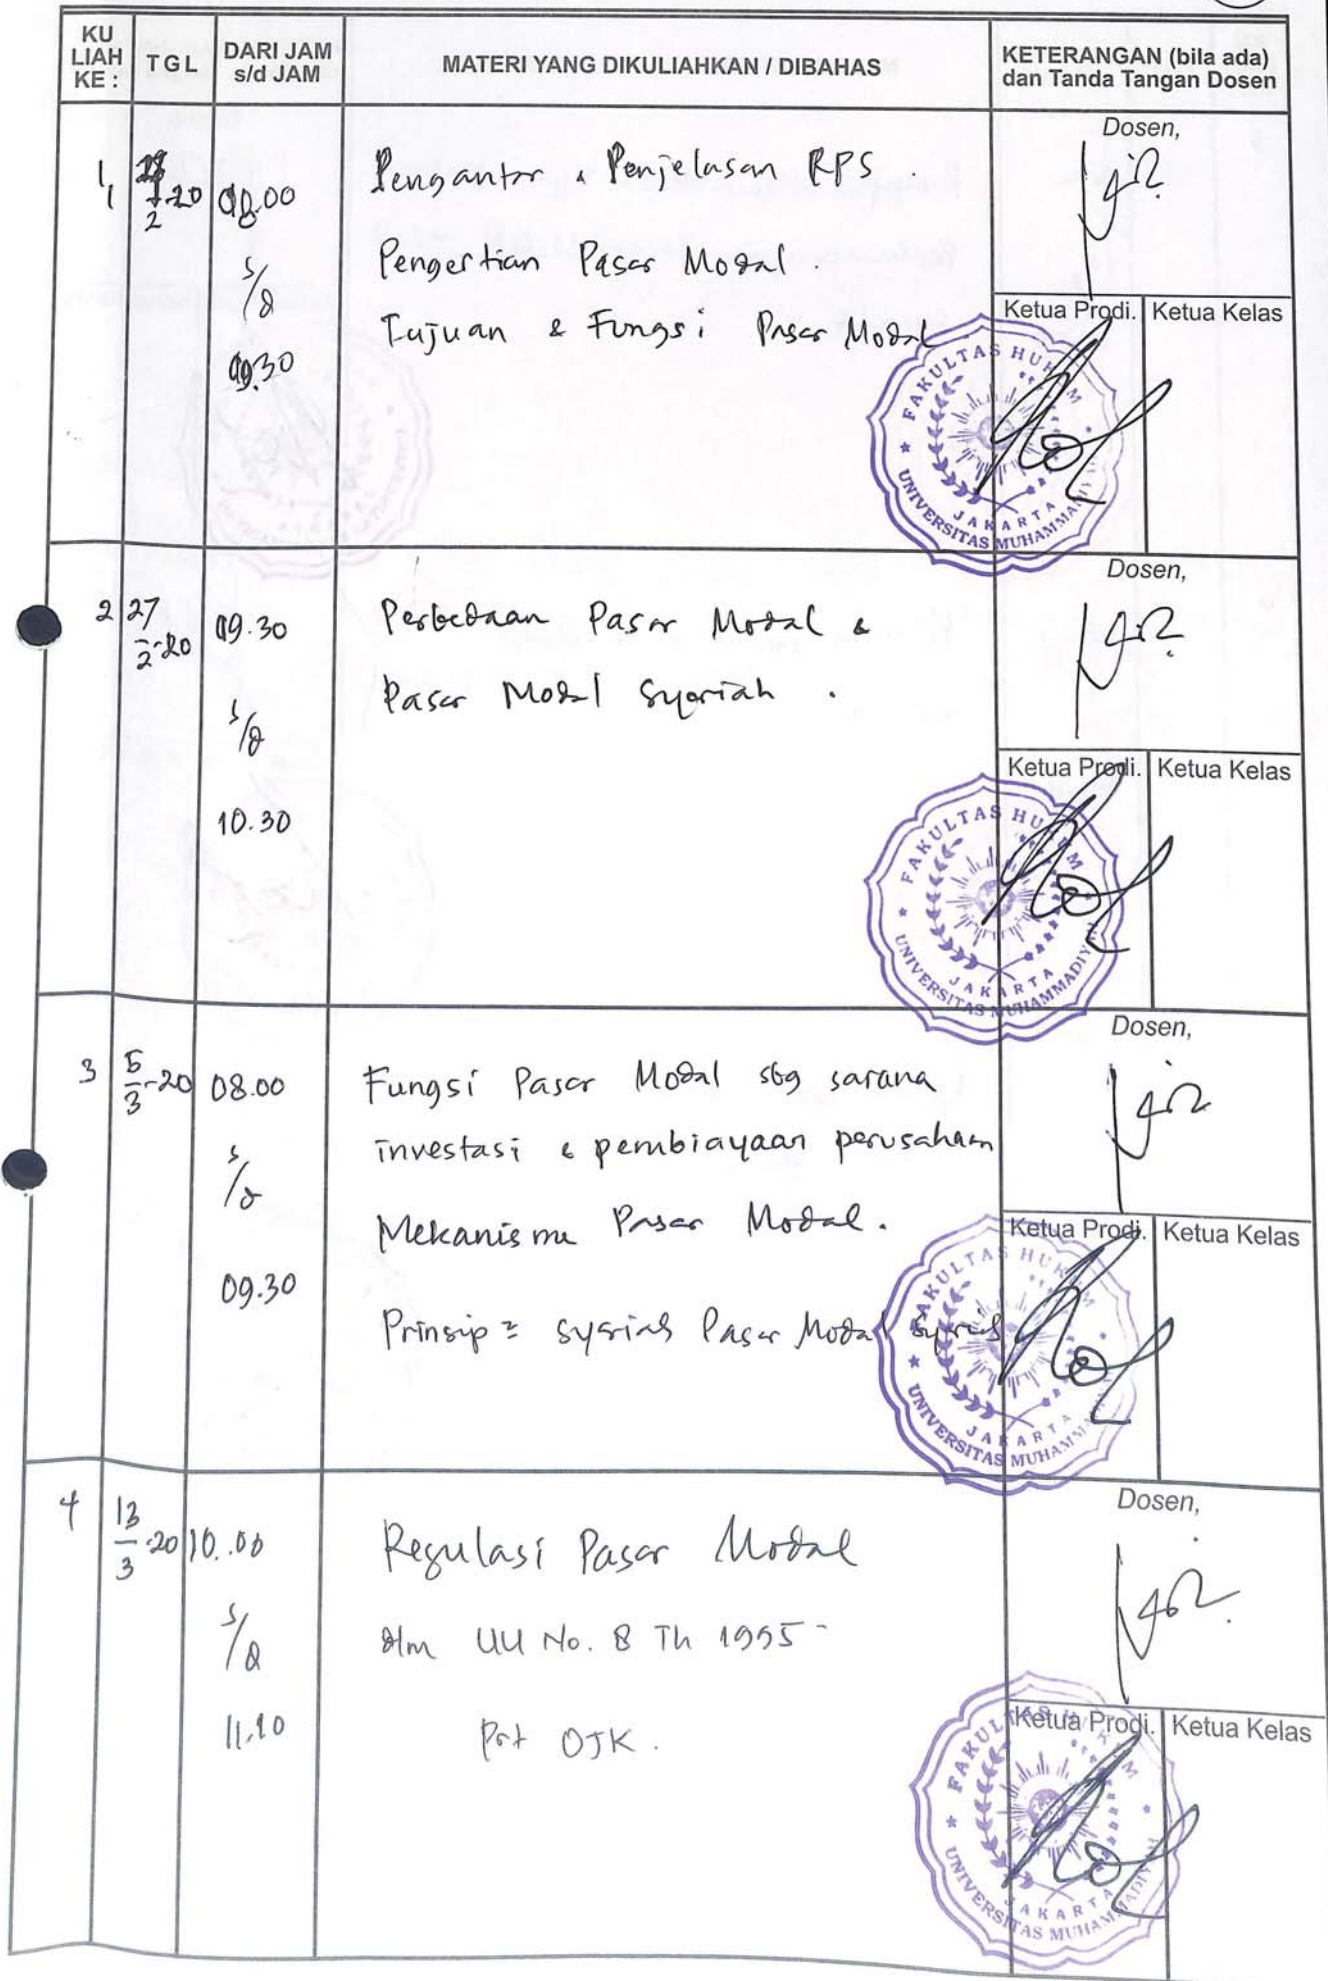 KU
LIAH
KE :
TGL
DARI JAM
s/d JAM
MATERI YANG DIKULIAHKAN / DIBAHAS
KETERANGAN (bila ada)
dan Tanda Tangan Dosen
Dosen,
1,
2 -20
08.00
s/d
09.30
Pengantar & Penjelasan RPS.
Pengertian Pasar Modal.
Tujuan & Fungsi Pasar Modal
Ketua Prodi.
Ketua Kelas
FAKULTAS HUKUM
UNIVERSITAS MUHAMMADIYAH
JAKARTA
Dosen,
2
27/2-20
09.30
s/d
10.30
Perbedaan Pasar Modal &
Pasar Modal Syariah.
Ketua Prodi.
Ketua Kelas
FAKULTAS HUKUM
UNIVERSITAS MUHAMMADIYAH
JAKARTA
Dosen,
3
5/3-20
08.00
s/d
09.30
Fungsi Pasar Modal sbg sarana
investasi & pembiayaan perusahaan
Mekanisme Pasar Modal.
Prinsip2 syariah Pasar Modal Syariah
Ketua Prodi.
Ketua Kelas
FAKULTAS HUKUM
UNIVERSITAS MUHAMMADIYAH
JAKARTA
Dosen,
4
13/3-20
10.00
s/d
11.10
Regulasi Pasar Modal
dlm UU No. 8 Th 1995-
Prt OJK.
Ketua Prodi.
Ketua Kelas
FAKULTAS HUKUM
UNIVERSITAS MUHAMMADIYAH
JAKARTA